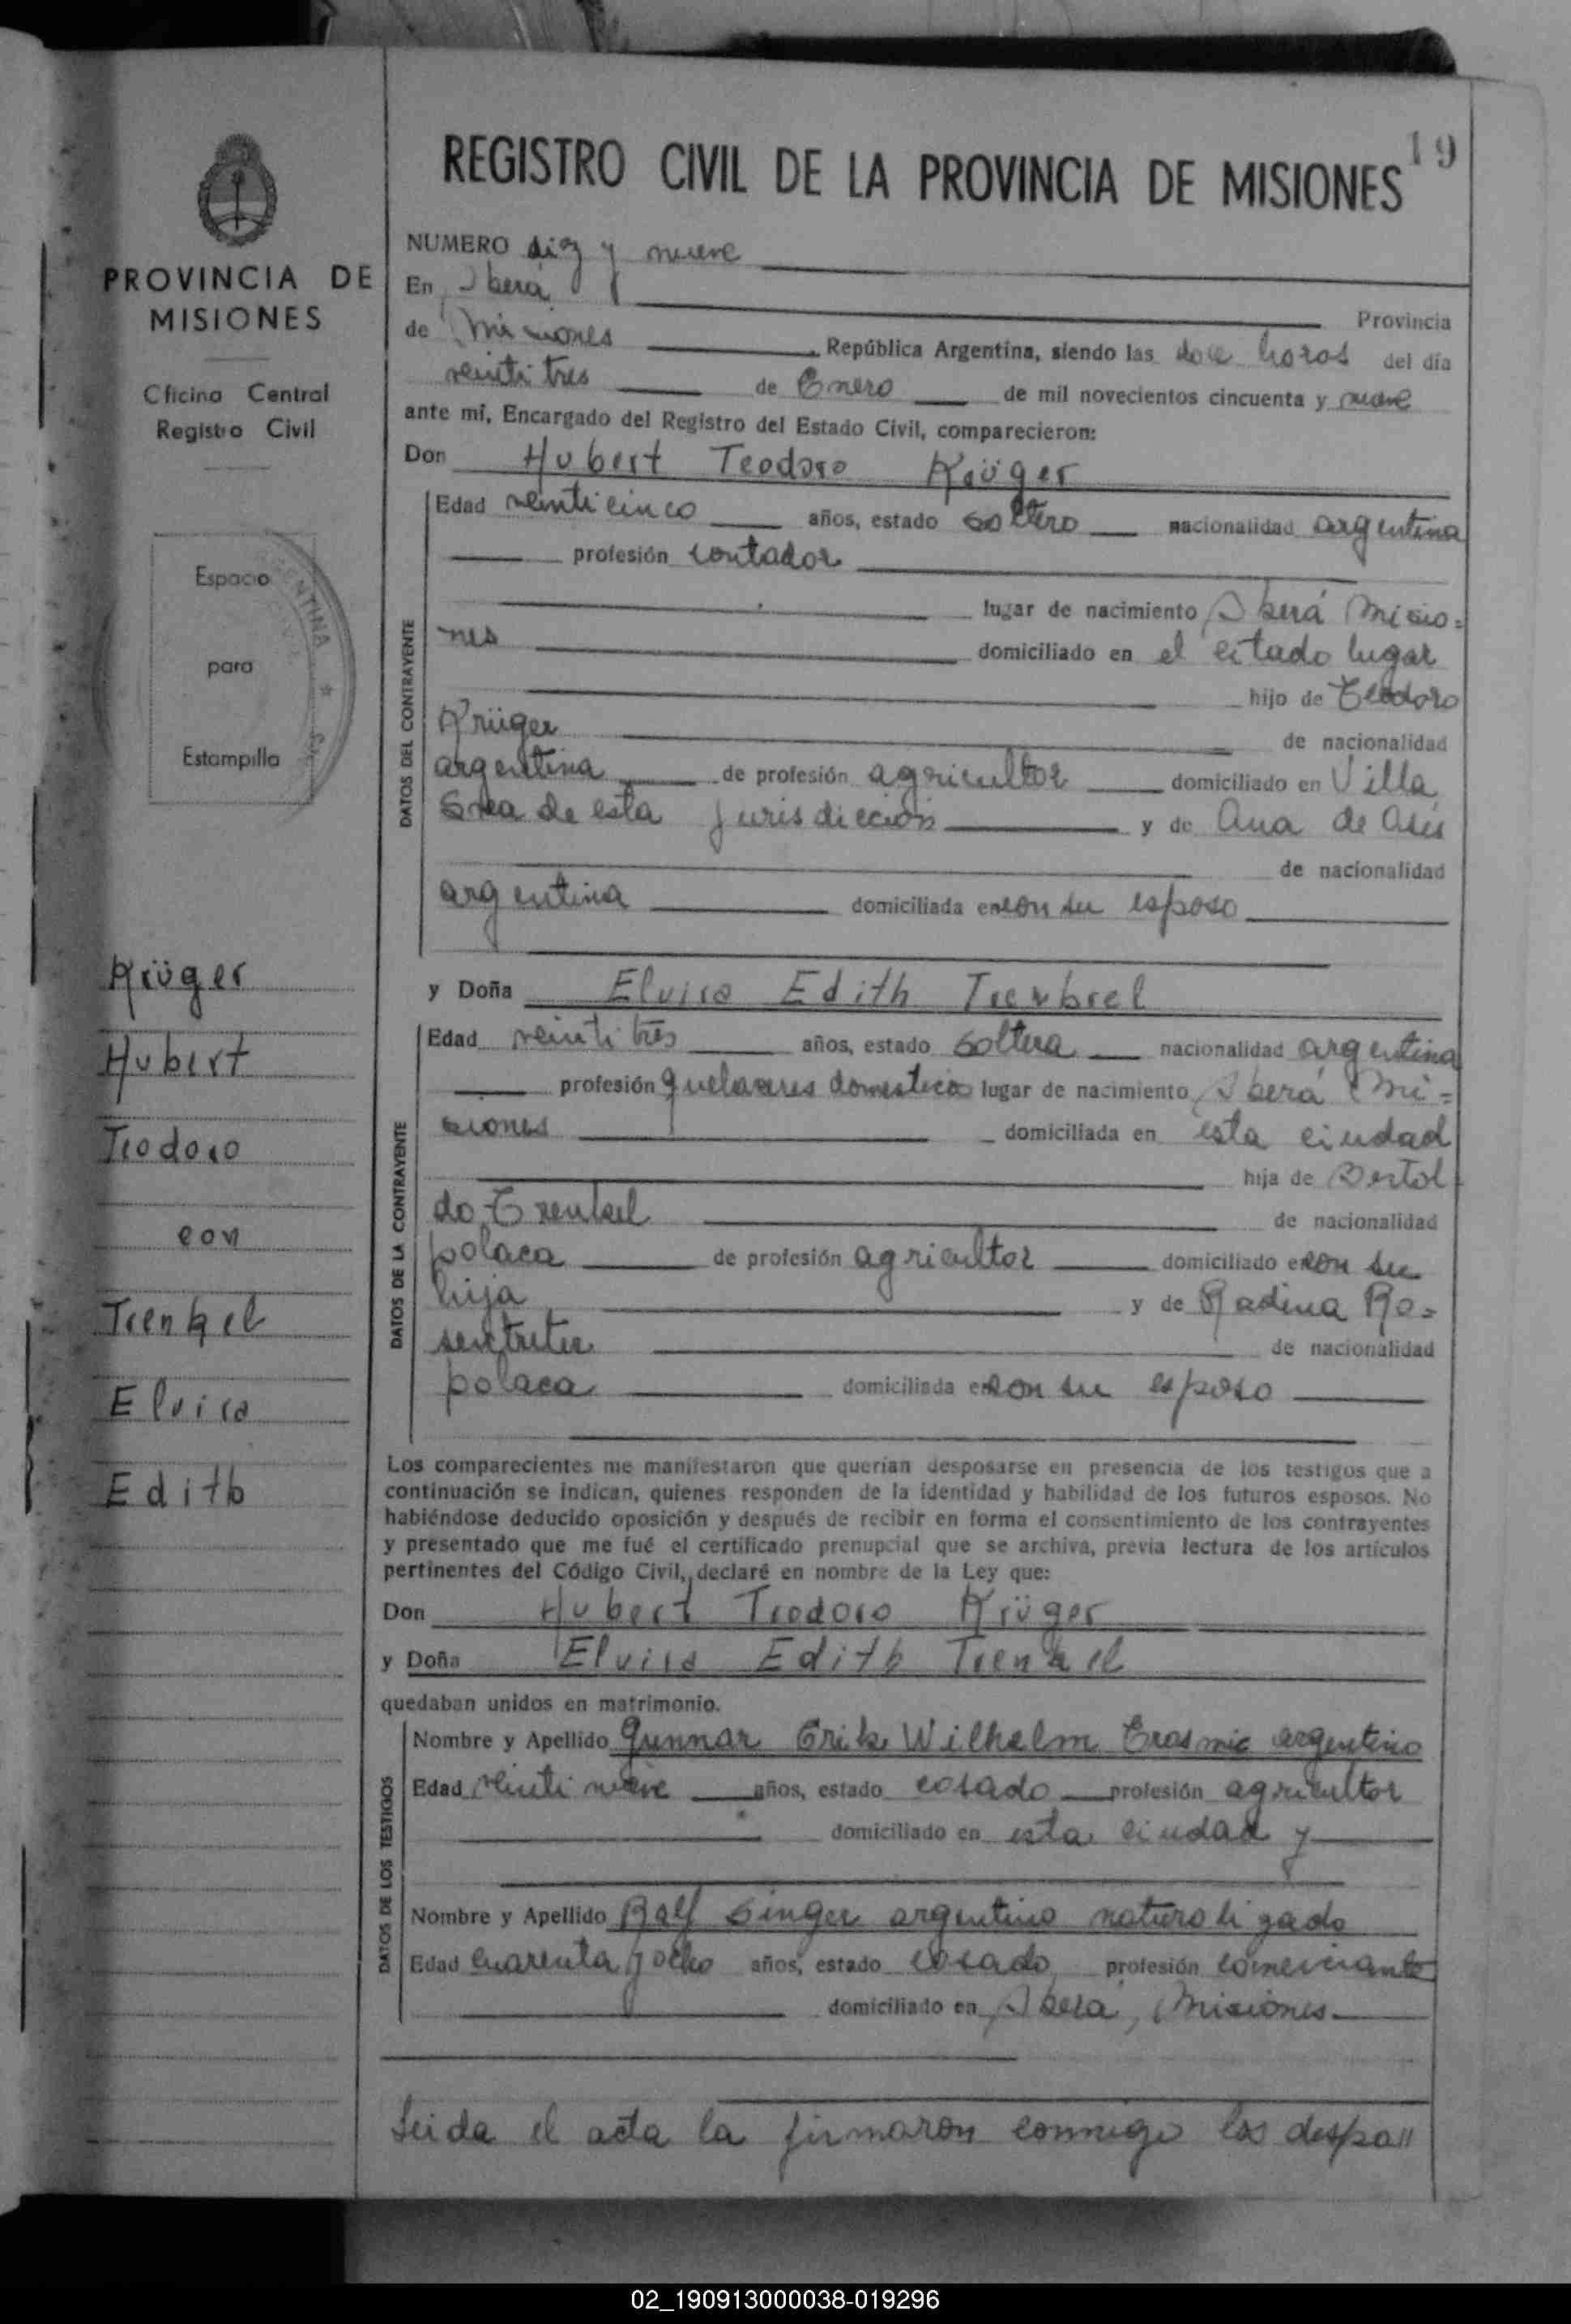 19
REGISTRO CIVIL DE LA PROVINCIA DE MISIONES
NUMERO diez y nueve
En Oberá Provincia
de Misiones República Argentina, siendo las doce horas del día
veinti tres de Enero de mil novecientos cincuenta y nueve
ante mí, Encargado del Registro del Estado Civil, comparecieron:
Don Hubert Teodoro Krüger
DATOS DEL CONTRAYENTE
Edad veinticinco años, estado soltero nacionalidad argentina
profesión contador
lugar de nacimiento Oberá Misio=
nes domiciliado en el citado lugar
hijo de Teodoro
Krüger de nacionalidad
argentina de profesión agricultor domiciliado en Villa
de esta jurisdicción y de Ana de Asis
de nacionalidad
argentina domiciliada en con su esposo
y Doña Elvira Edith Trenkel
DATOS DE LA CONTRAYENTE
Edad veinti tres años, estado soltera nacionalidad argentina
profesión quehaceres domesticos lugar de nacimiento Oberá Mi=
siones domiciliada en esta ciudad
hija de Bertol
do Trenkel de nacionalidad
polaca de profesión agricultor domiciliado en con su
hija y de Radina Ro=
de nacionalidad
polaca domiciliada en con su esposo
Los comparecientes me manifestaron que querían desposarse en presencia de los testigos que a
continuación se indican, quienes responden de la identidad y habilidad de los futuros esposos. No
habiéndose deducido oposición y después de recibir en forma el consentimiento de los contrayentes
y presentado que me fué el certificado prenupcial que se archiva, previa lectura de los artículos
pertinentes del Código Civil, declaré en nombre de la Ley que:
Don Hubert Teodoro Krüger
y Doña Elvira Edith Trenkel
quedaban unidos en matrimonio.
DATOS DE LOS TESTIGOS
Nombre y Apellido Gunnar Erik Wilhelm Erasmie argentino
Edad veinti nueve años, estado casado profesión agricultor
domiciliado en esta ciudad y
Nombre y Apellido Ralf Singer argentino naturalizado
Edad cuarenta y ocho años, estado casado profesión comerciante
domiciliado en Oberá, Misiones
Leida el acta la firmaron conmigo los despo"
PROVINCIA DE
MISIONES
Oficina Central
Registro Civil
Espacio
para
Estampilla
Krüger
Hubert
Teodoro
con
Trenkel
Elvira
Edith
02_190913000038-019296